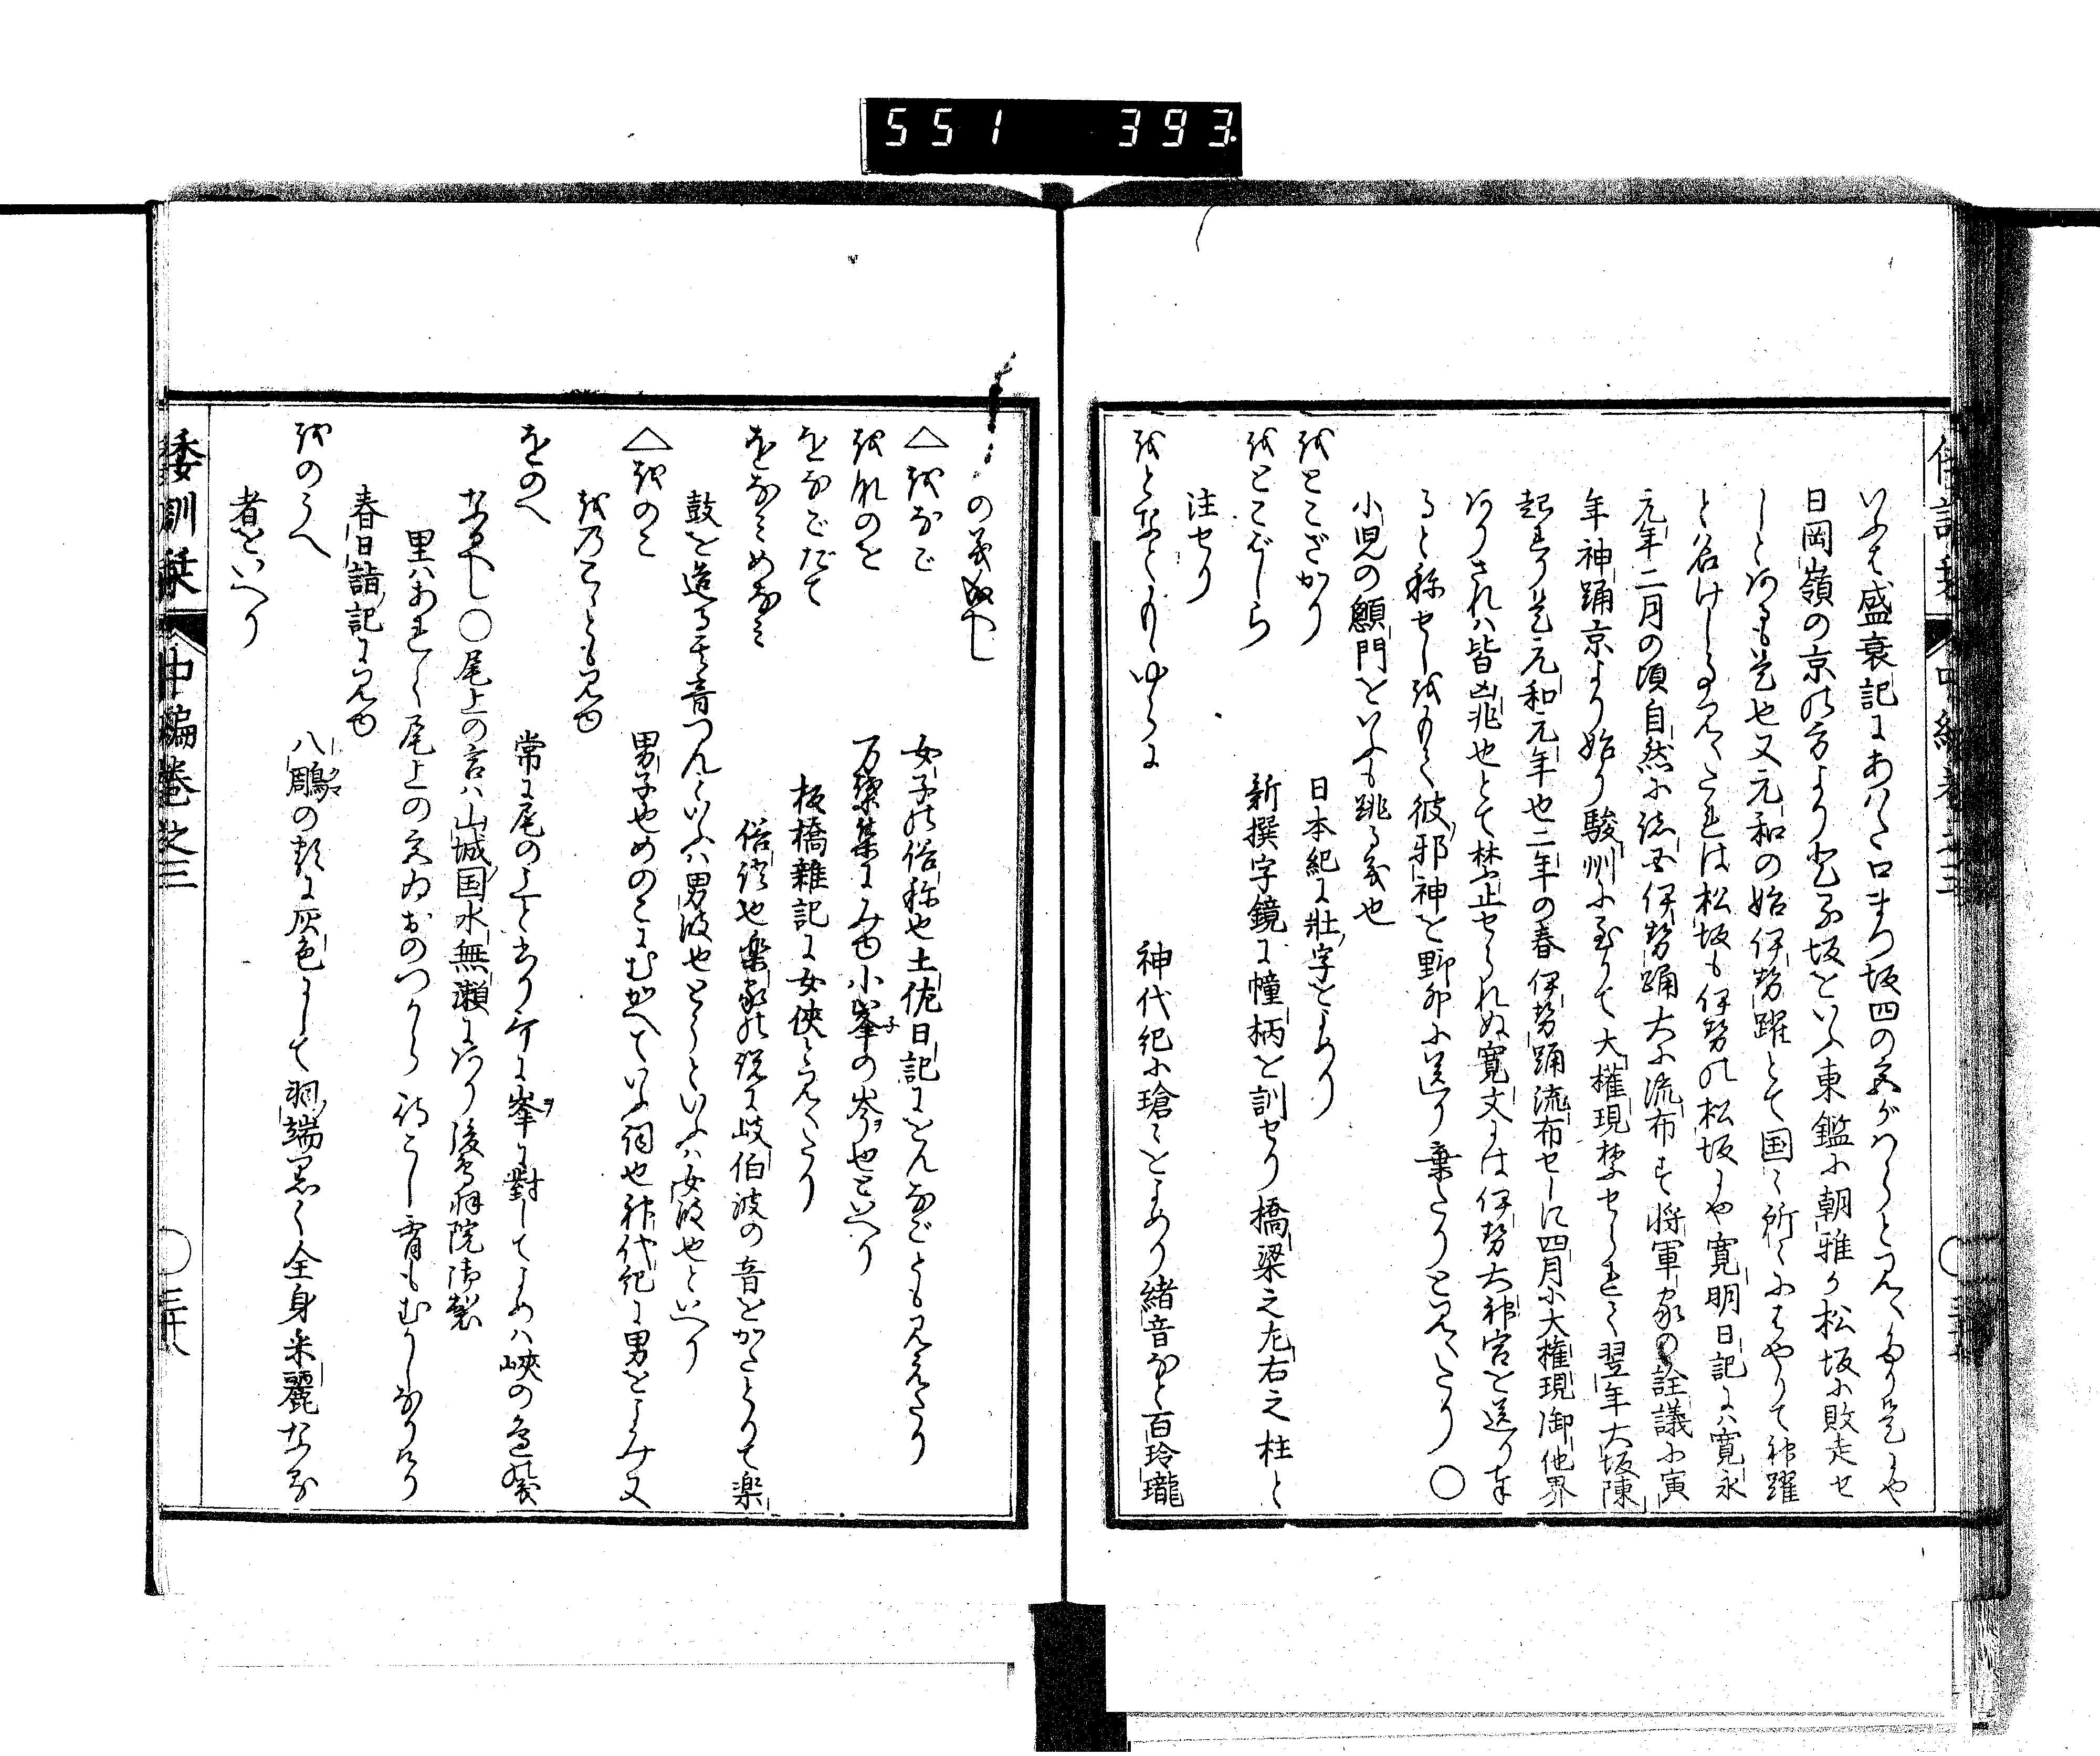 551 393
いふは盛衰記にあはた口まつ坂四の宮がはらと見えたり是にや
日岡嶺の京の方より登る坂をいふ東鑑に朝雅か松坂に敗走せ
しとあるも是也又元和の始伊勢躍とて国々所々にはやりて神躍
と名けしよし見えたれは松坂も伊勢の松坂にや寛明日記には寛永
元年二月の頃自然に諸国伊勢踊大に流布す将軍家の詮議に寅
年神踊京より始り駿州に至りて大権現禁せられて翌年大坂陳
起れり是元和元年也二年の春伊勢踊流布せしに四月に大権現御他界
ありされは皆凶兆也とて禁止せられぬ寛文には伊勢大神宮を送り奉
ると称せしをもて彼邪神を野外に送り棄たりと見えたり〇
小児の顖門をいふも跳る義也
をとこざかり 日本紀に壮字をよめり
をとこばしら 新撰字鏡に幢柄を訓せり橋梁之左右之柱と
注せり
をとなともゆらに 神代紀に瑲々をよめり緒音なと百玲瓏
の義成へし
△をなご 女子の俗称也土佐日記にをんなごとも見えたり
をねのを 万葉集にみゆ小峯の岑也といへり
をなごだて 板橋雑記に女侠と見えたり
をなみめなみ 俗語也楽家の説に岐伯波の音をかたとりて楽
鼓を造る其音つんといふは男波也とうといふは女波也といへり
△をのこ 男子也めのこにむかへていふ詞也神代紀に男をよみ又
をのこゝとも見ゆ
をのへ 常に尾の上と書り万に峯に對してよめは峽の色葉
なるへし〇尾上の宮は山城国水無瀬にあり後鳥羽院御製
里はあれて尾上の宮のおのつから待こし宵もむかしなりけり
春日詣記に見ゆ
をのうへ 八鵰の類に灰色にして羽端黒く全身米麗なる
者をいへり
倭訓栞 中編巻之三 〇三十八